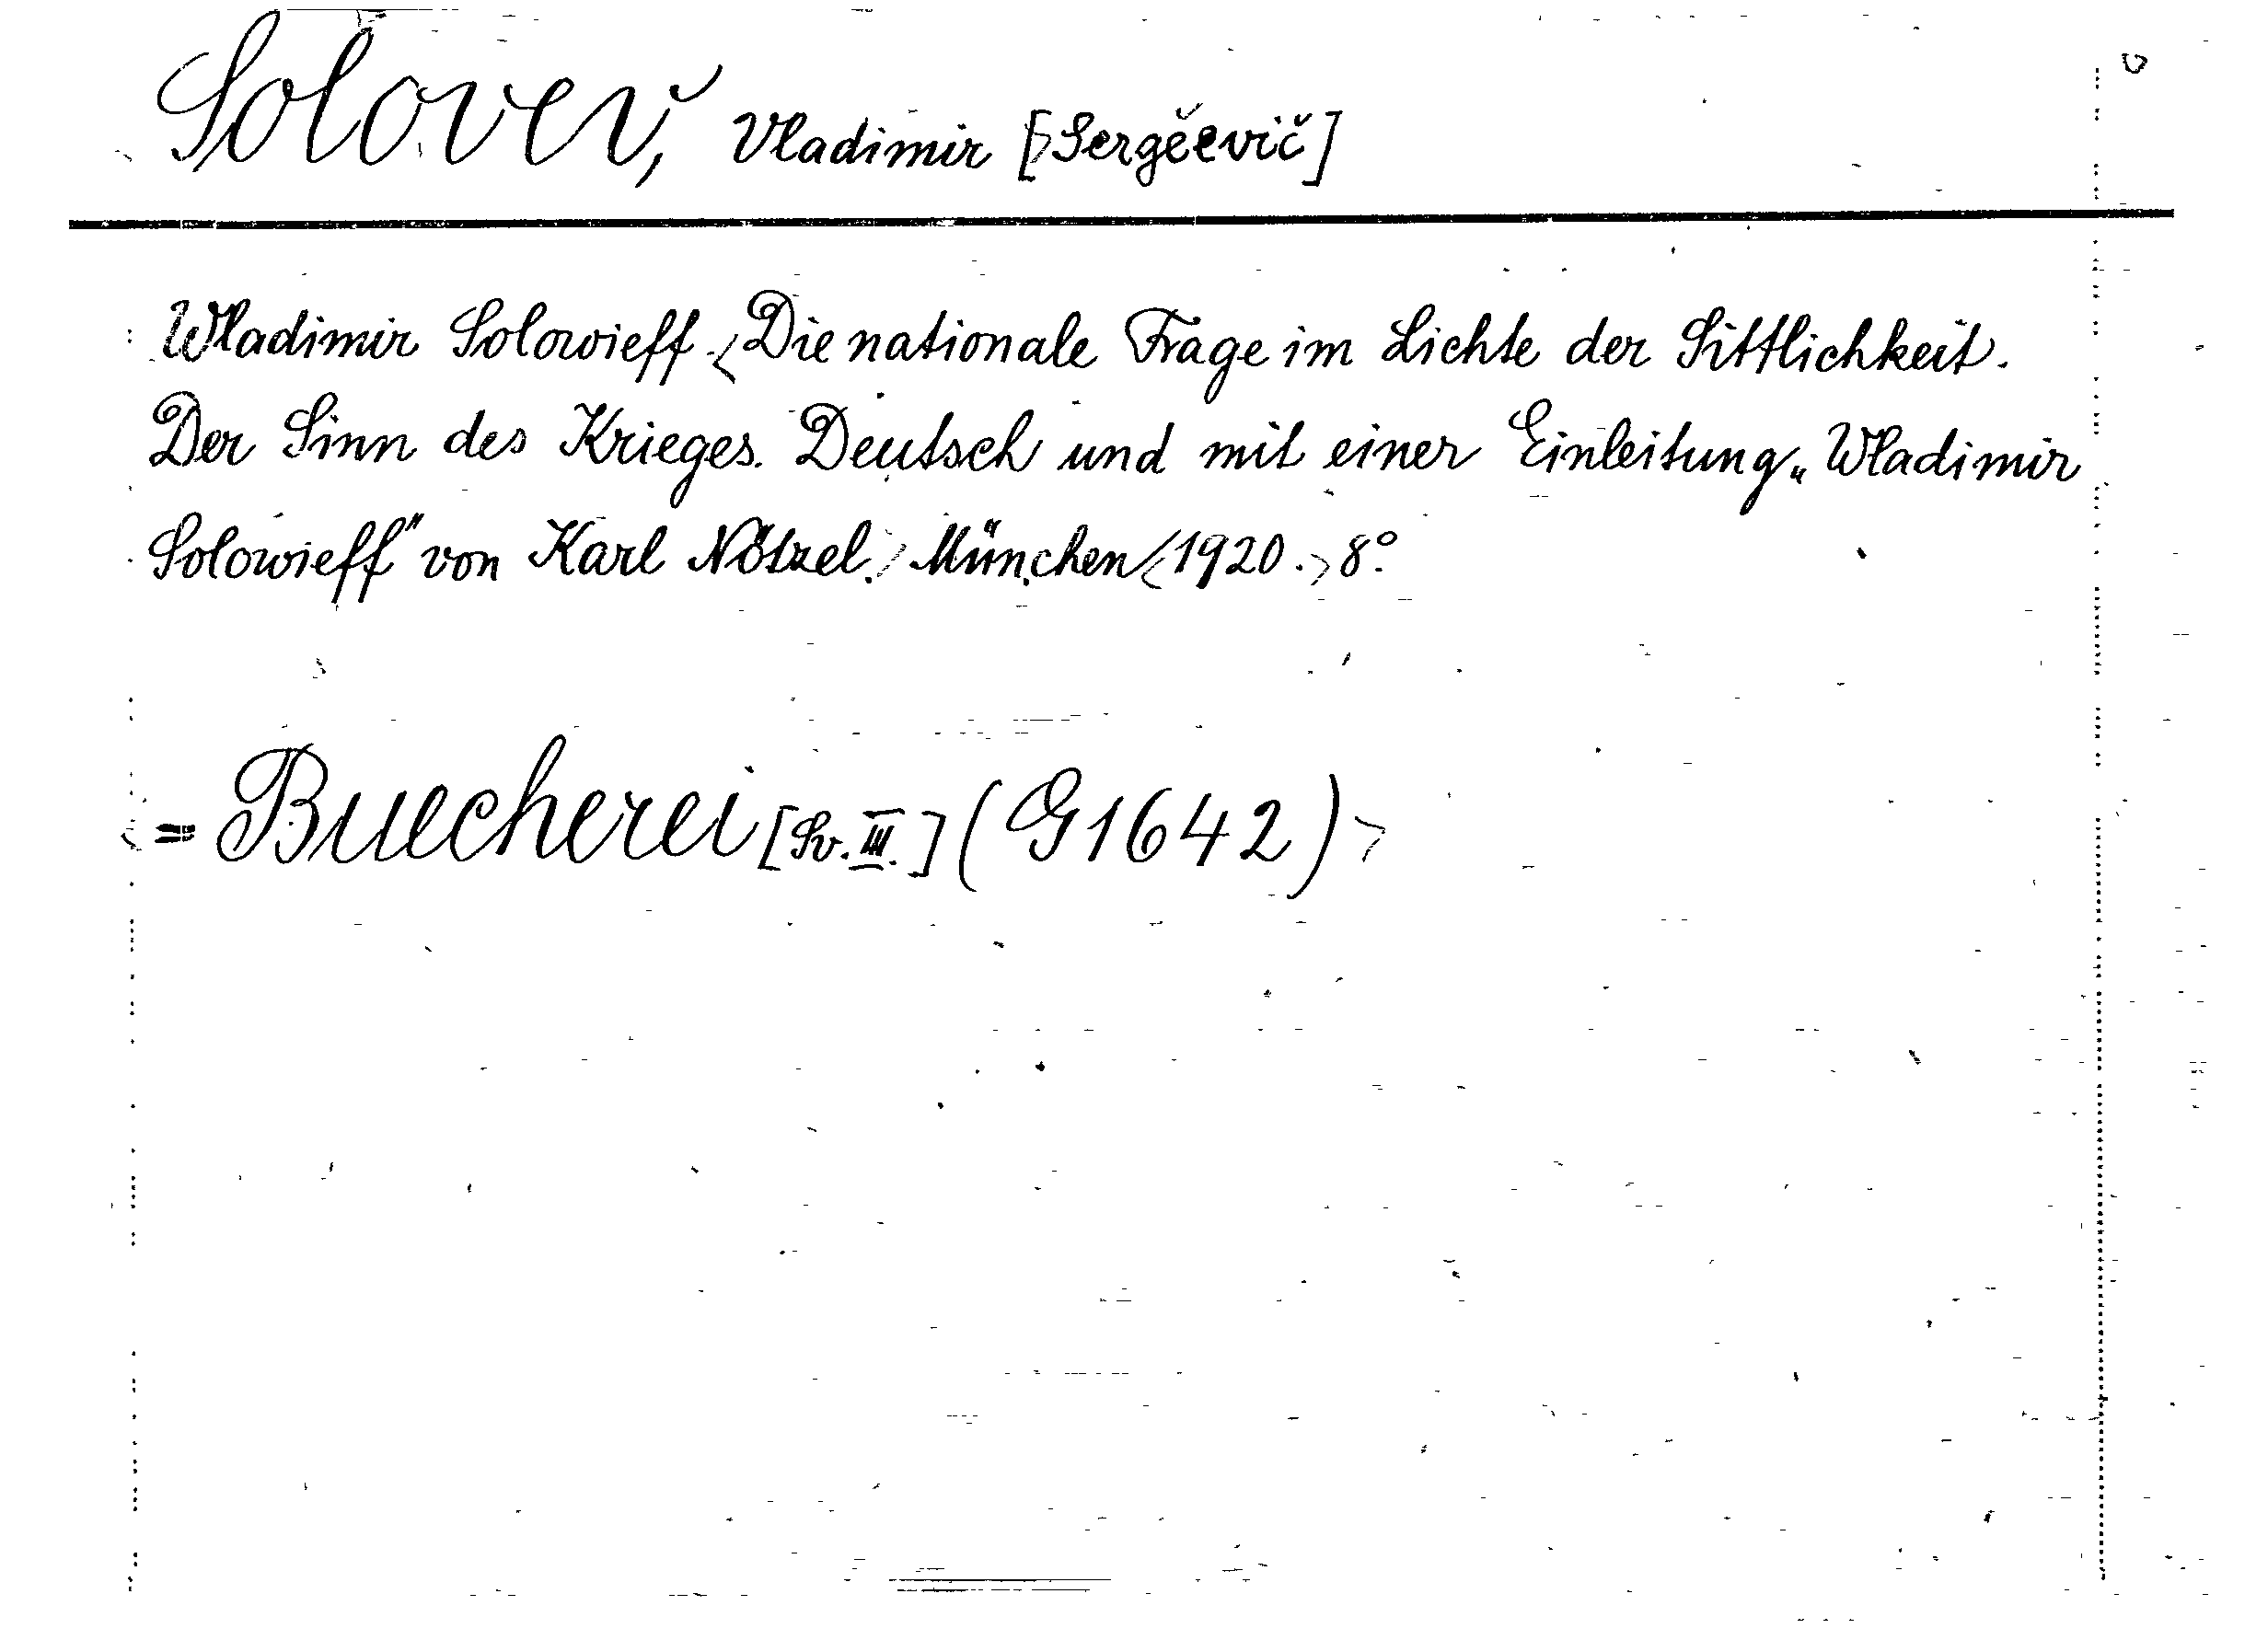 Solovev, Vladimir [Sergěevič]
Wladimir Solowieff. <Die nationale Frage im Lichte der Sittlichkeit.
Der Sinn des Krieges. Deutsch und mit einer Einleitung „Wladimir
Solowieff" von Karl Nötzel.> München <1920.> 8°.
<= Buecherei [Sv. III.] (G1642)>